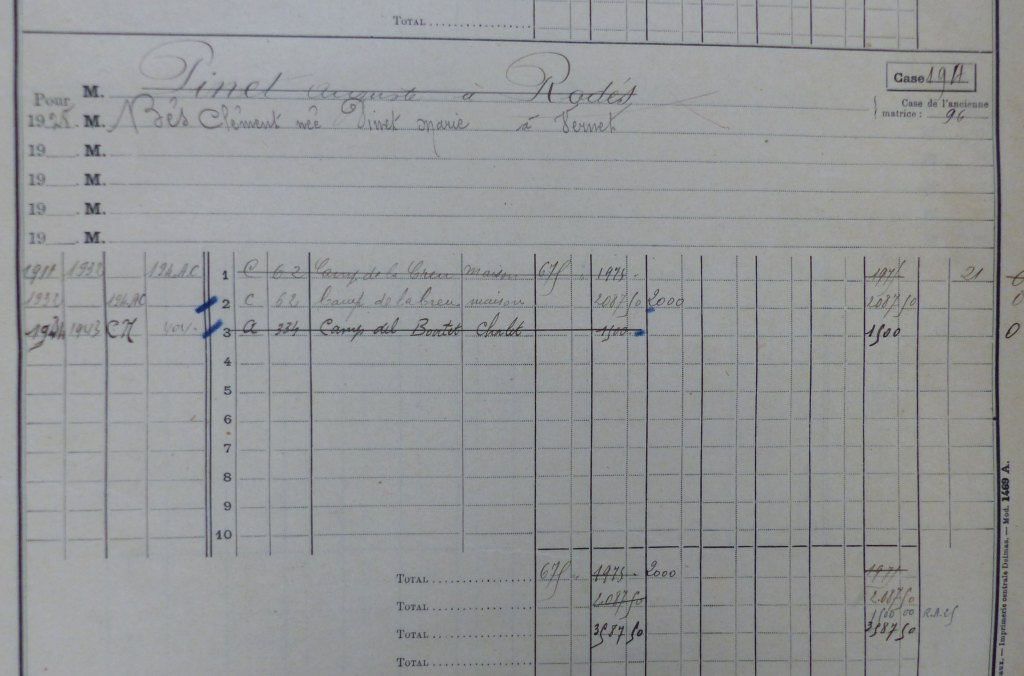 Total
Case 194
M. Pinet Auguste à Rodés
Case de l'ancienne
matrice : 96
Pour
1925 M. Bès Clément née Pinet Marie à Vernet
19 M.
19 M.
19 M.
19 M.
1911 1932 194 AC 1 C 62 Camp de la Creu maison 675 1975 1975 21
1932 194 AC 2 C 62 Camp de la Creu maison 2087 50 2000 2087 50 0
1943 3 A 334 Camp del Boutet Chalet 1500 1500 0
4
5
6
7
8
9
10
Total 675 1975 2000 1975
Total 2087 50 2087 50
1500 00
Total 3587 50 3587 50
Total
Imprimerie centrale Delmas. — Mod. 1469 A.